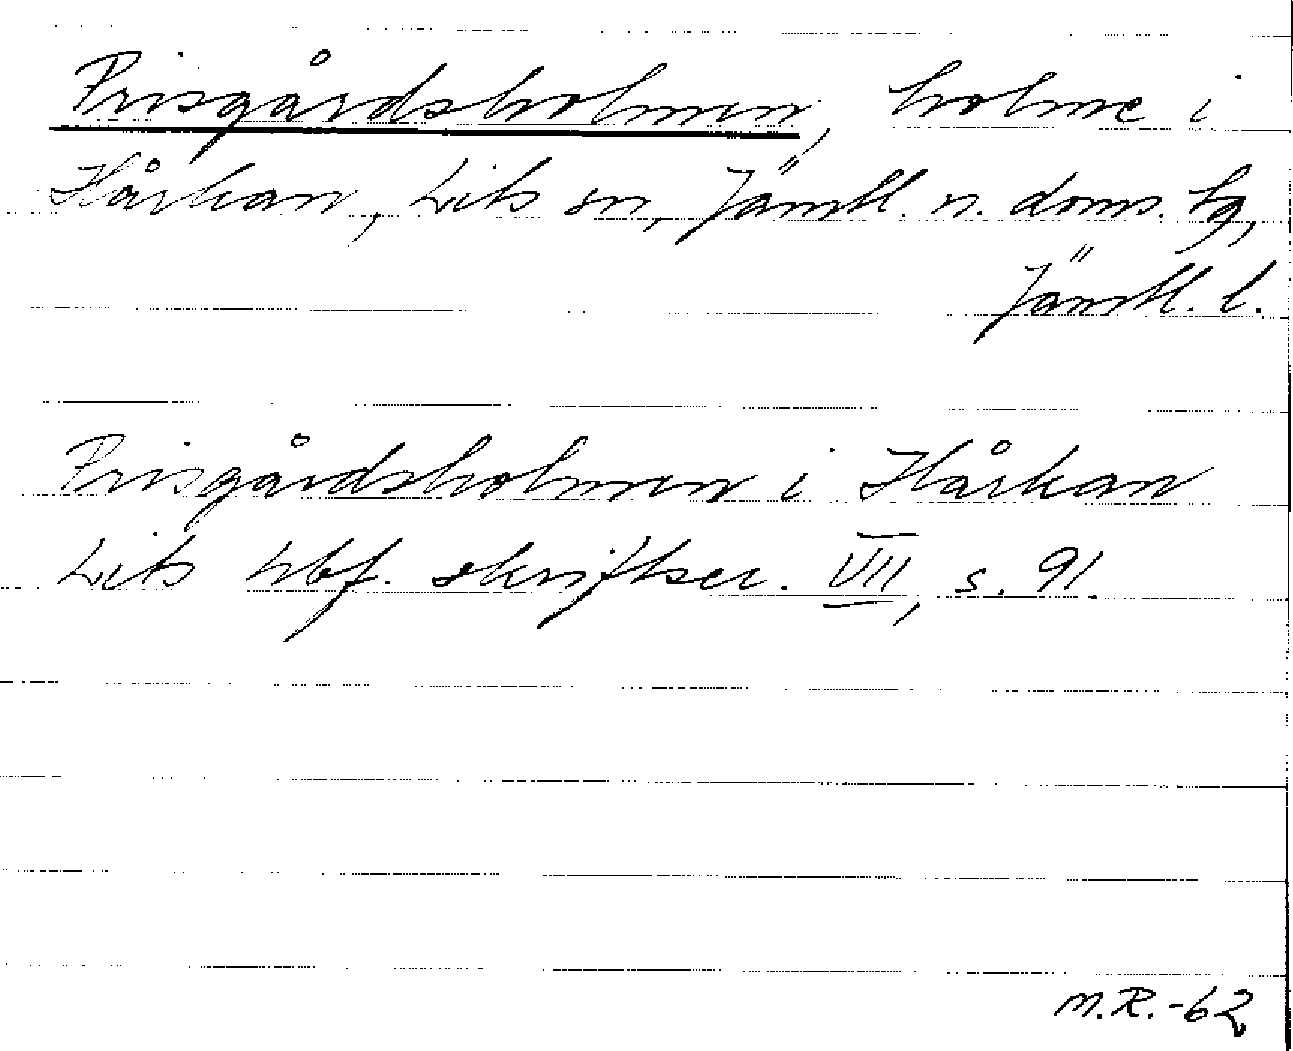 Prisgårdsholmen, holme i
Hårkan, Lits sn, Jämtl. n. doms. tg,
Jämtl. l.
Prisgårdsholmen i Hårkan
Lits hbf. skriftser. VII, s. 91.
M.R.-62